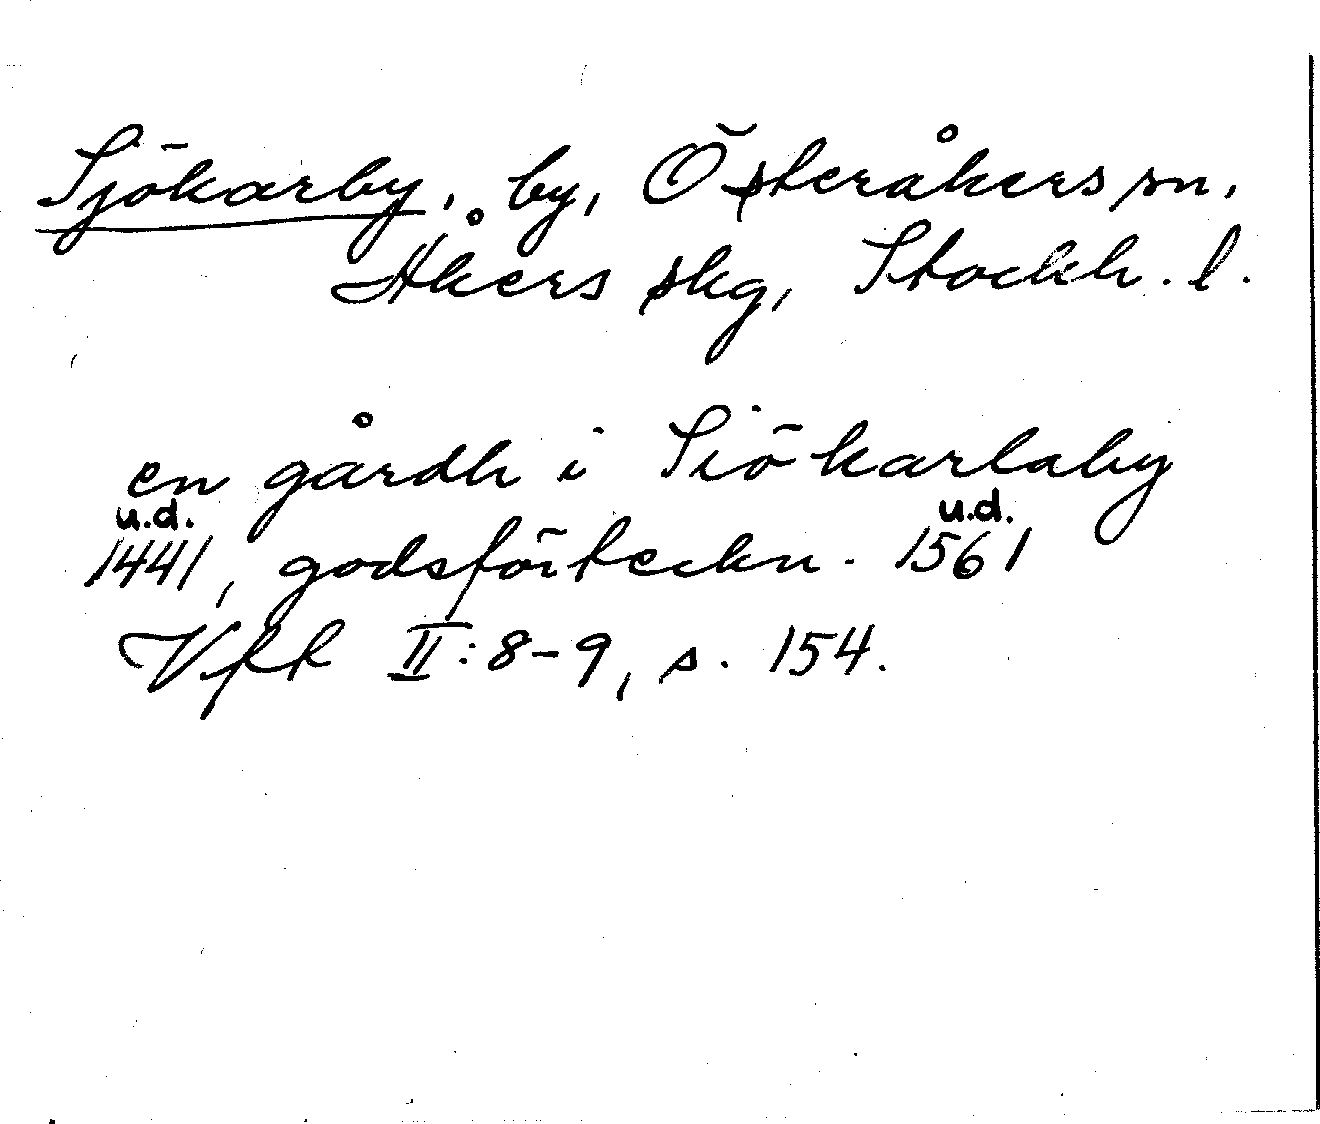 Sjökarby, by, Österåkers sn,
Åkers skg, Stockh. l.
en gårdh i Siökarlaby
u.d. u.d.
1441, godsförteckn. 1561
Vfr II:8-9, s. 154.